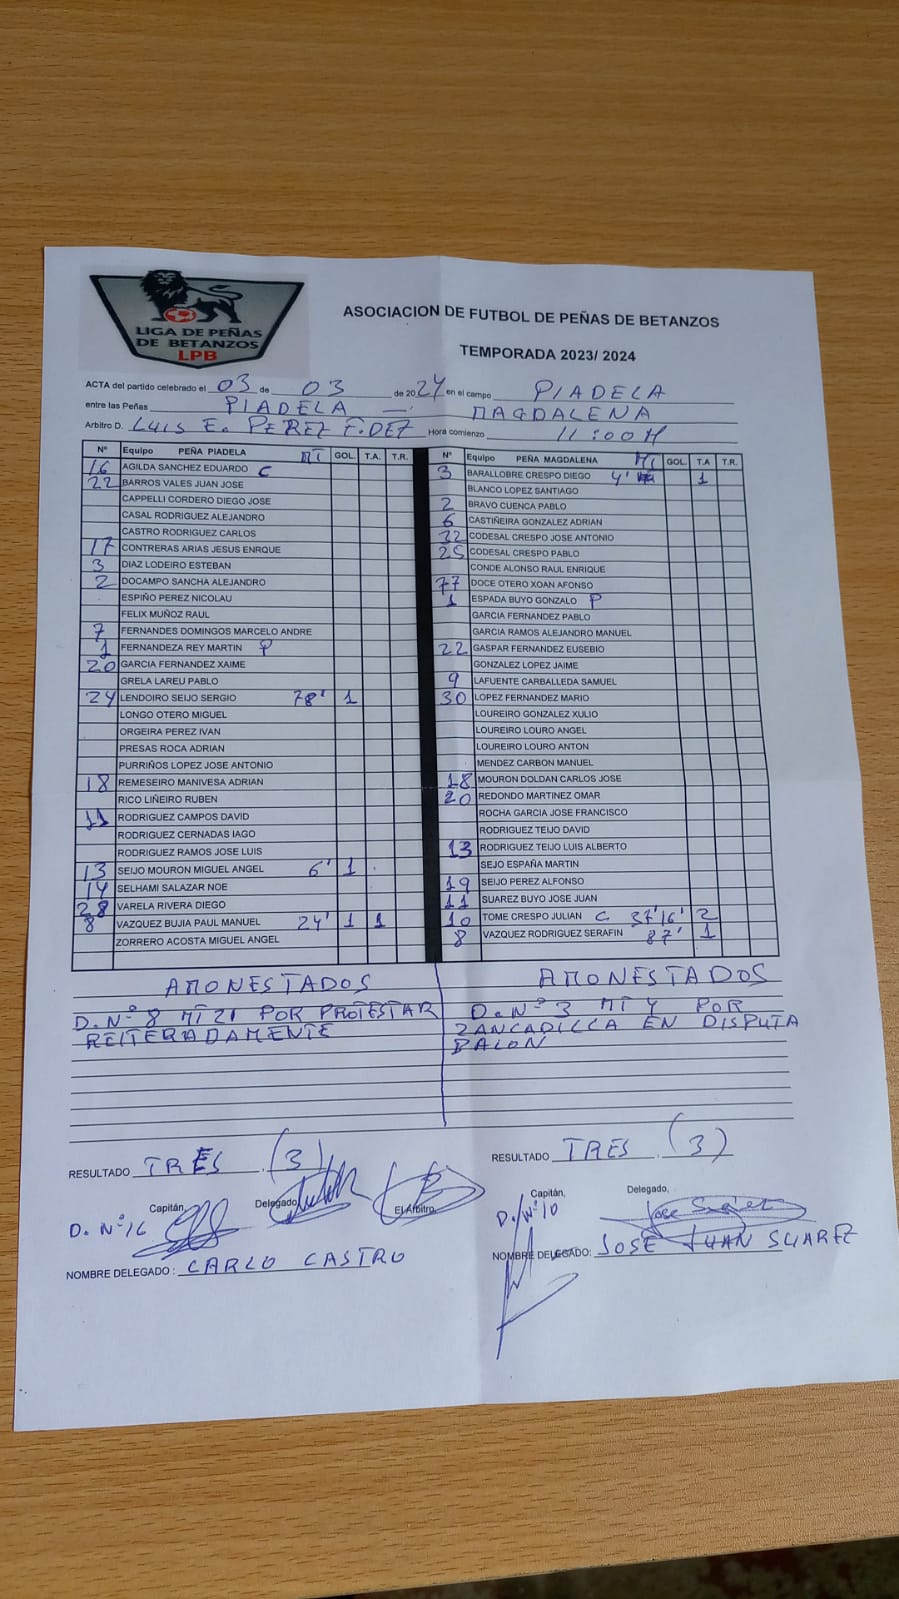 LIGA DE PEÑAS
DE BETANZOS
LPB
ASOCIACION DE FUTBOL DE PEÑAS DE BETANZOS
TEMPORADA 2023/ 2024
ACTA del partido celebrado el 03 de 03 de 2024 en el campo PIADELA
entre las Peñas PIADELA — MAGDALENA
Arbitro D. LUIS E. PEREZ F.DEZ Hora comienzo 11:00H
Nº Equipo PEÑA PIADELA MT GOL. T.A. T.R.
16 AGILDA SANCHEZ EDUARDO C
22 BARROS VALES JUAN JOSE
CAPPELLI CORDERO DIEGO JOSE
CASAL RODRIGUEZ ALEJANDRO
CASTRO RODRIGUEZ CARLOS
17 CONTRERAS ARIAS JESUS ENRQUE
3 DIAZ LODEIRO ESTEBAN
2 DOCAMPO SANCHA ALEJANDRO
ESPIÑO PEREZ NICOLAU
FELIX MUÑOZ RAUL
7 FERNANDES DOMINGOS MARCELO ANDRE
1 FERNANDEZA REY MARTIN P
20 GARCIA FERNANDEZ XAIME
GRELA LAREU PABLO
24 LENDOIRO SEIJO SERGIO 78' 1
LONGO OTERO MIGUEL
ORGEIRA PEREZ IVAN
PRESAS ROCA ADRIAN
PURRIÑOS LOPEZ JOSE ANTONIO
18 REMESEIRO MANIVESA ADRIAN
RICO LIÑEIRO RUBEN
11 RODRIGUEZ CAMPOS DAVID
RODRIGUEZ CERNADAS IAGO
RODRIGUEZ RAMOS JOSE LUIS
13 SEIJO MOURON MIGUEL ANGEL 6' 1
14 SELHAMI SALAZAR NOE
28 VARELA RIVERA DIEGO
8 VAZQUEZ BUJIA PAUL MANUEL 24' 1 1
ZORRERO ACOSTA MIGUEL ANGEL
Nº Equipo PEÑA MAGDALENA MT GOL. T.A T.R.
3 BARALLOBRE CRESPO DIEGO 4' 1
BLANCO LOPEZ SANTIAGO
2 BRAVO CUENCA PABLO
6 CASTIÑEIRA GONZALEZ ADRIAN
32 CODESAL CRESPO JOSE ANTONIO
25 CODESAL CRESPO PABLO
CONDE ALONSO RAUL ENRIQUE
77 DOCE OTERO XOAN AFONSO
1 ESPADA BUYO GONZALO P
GARCIA FERNANDEZ PABLO
GARCIA RAMOS ALEJANDRO MANUEL
22 GASPAR FERNANDEZ EUSEBIO
GONZALEZ LOPEZ JAIME
9 LAFUENTE CARBALLEDA SAMUEL
30 LOPEZ FERNANDEZ MARIO
LOUREIRO GONZALEZ XULIO
LOUREIRO LOURO ANGEL
LOUREIRO LOURO ANTON
MENDEZ CARBON MANUEL
18 MOURON DOLDAN CARLOS JOSE
20 REDONDO MARTINEZ OMAR
ROCHA GARCIA JOSE FRANCISCO
RODRIGUEZ TEIJO DAVID
13 RODRIGUEZ TEIJO LUIS ALBERTO
SEJO ESPAÑA MARTIN
19 SEIJO PEREZ ALFONSO
11 SUAREZ BUYO JOSE JUAN
10 TOME CRESPO JULIAN C 37'16' 2
8 VAZQUEZ RODRIGUEZ SERAFIN 87' 1
AMONESTADOS
D. Nº 8 MT 21 POR PROTESTAR
REITERADAMENTE
AMONESTADOS
D. Nº 3 MT 4 POR
ZANCADILLA EN DISPUTA
BALON
RESULTADO TRES (3)
Capitán, Delegado, El Arbitro,
D. Nº 16
NOMBRE DELEGADO : CARLO CASTRO
RESULTADO TRES (3)
Capitán, Delegado,
D. Nº 10 Jose Suárez
NOMBRE DELEGADO: JOSE JUAN SUAREZ